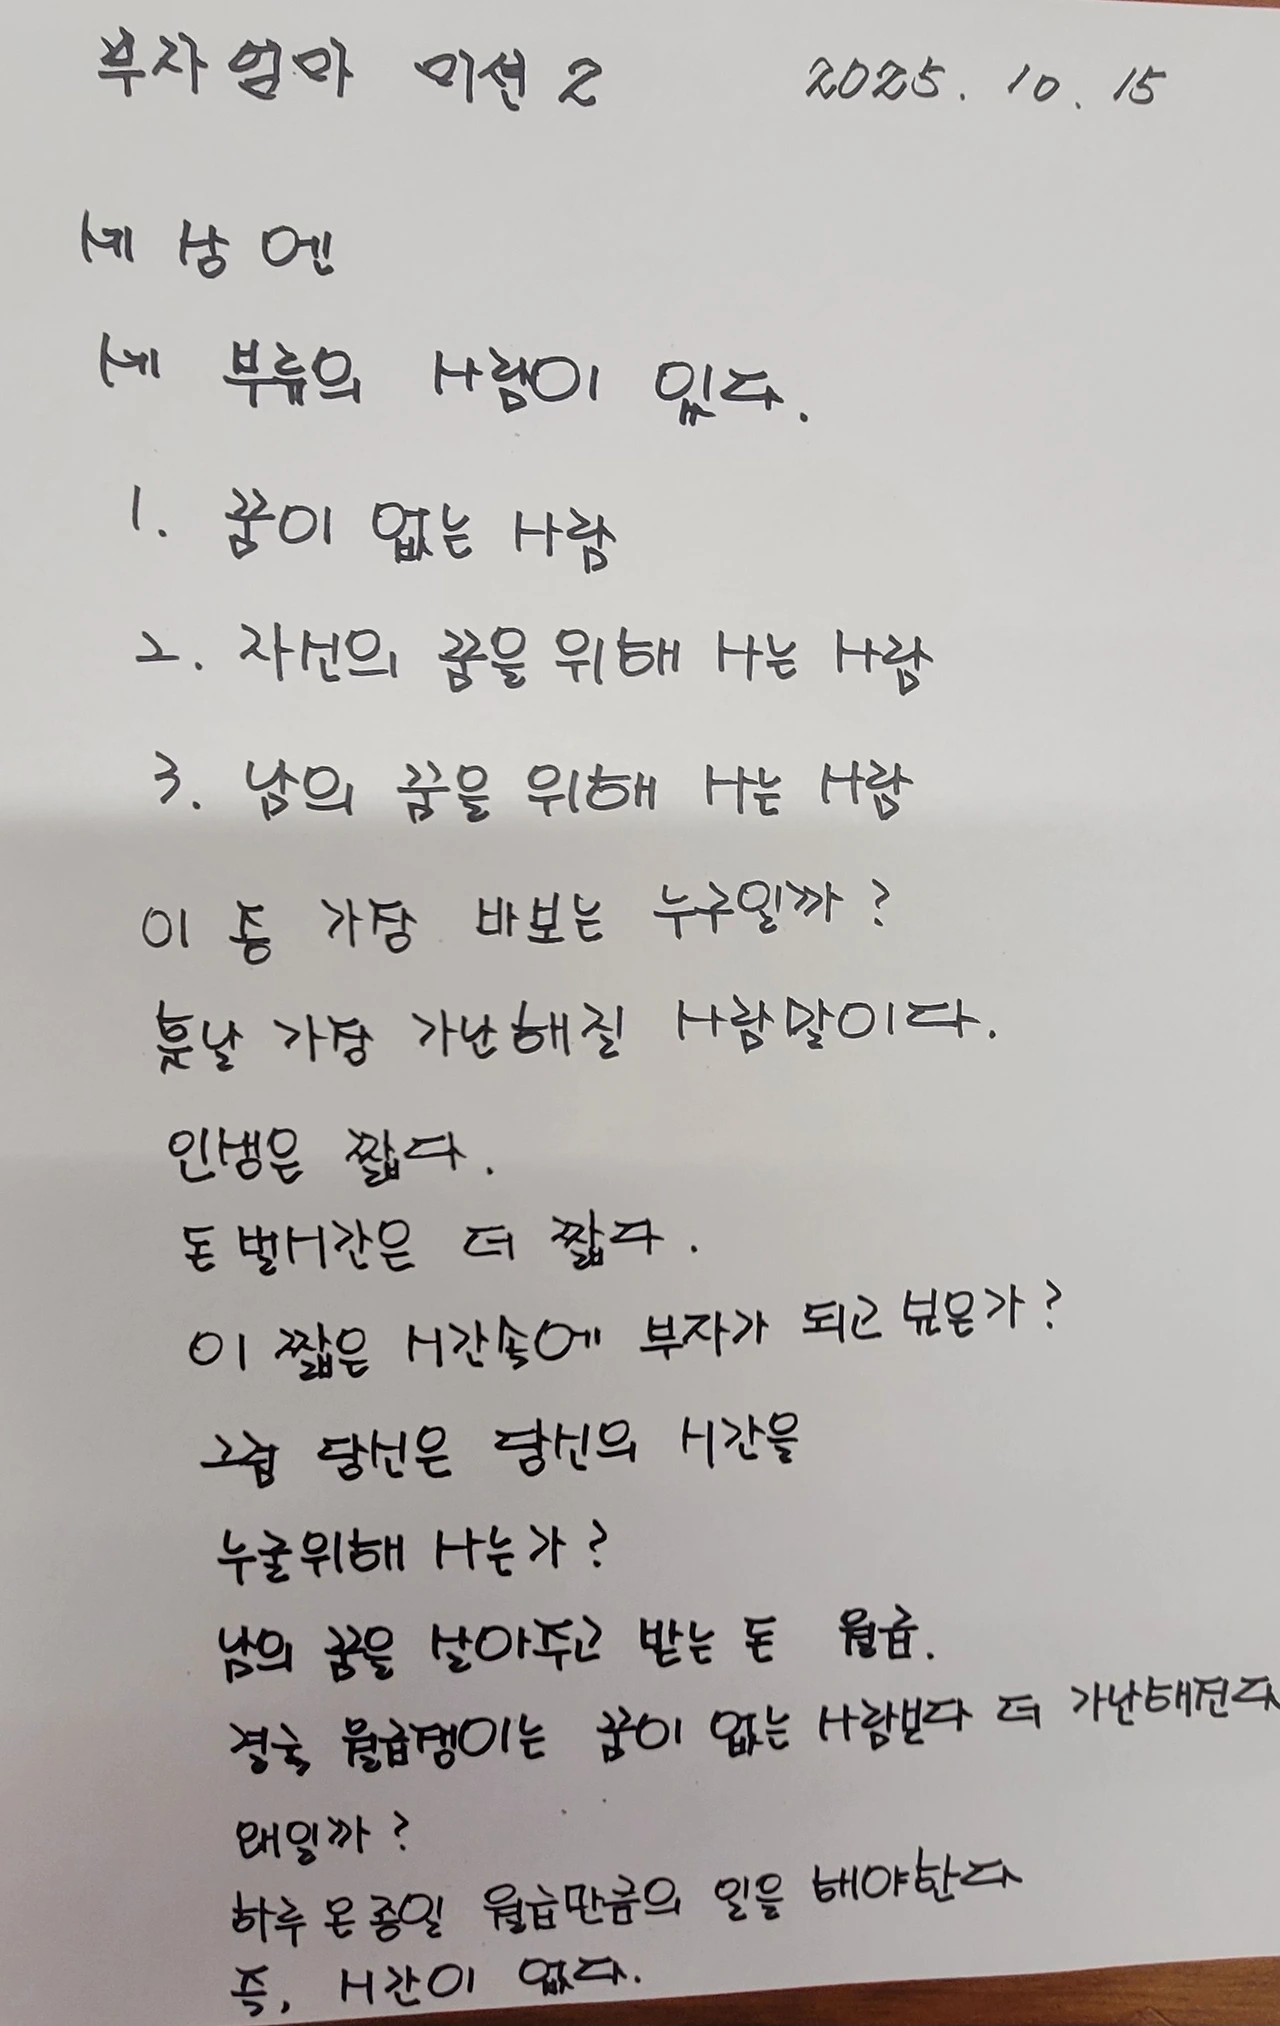 부자엄마 미션 2 2025. 10. 15
세상엔
세 부류의 사람이 있다.
1. 꿈이 없는 사람
2. 자신의 꿈을 위해 사는 사람
3. 남의 꿈을 위해 사는 사람
이 중 가장 바보는 누구일까?
훗날 가장 가난해질 사람말이다.
인생은 짧다.
돈벌시간은 더 짧다.
이 짧은 시간속에 부자가 되고 싶은가?
그럼 당신은 당신의 시간을
누굴위해 사는가?
남의 꿈을 살아주고 받는 돈 월급.
결국 월급쟁이는 꿈이 없는 사람보다 더 가난해진다
왜일까?
하루온종일 월급만큼의 일을 해야한다
즉, 시간이 없다.